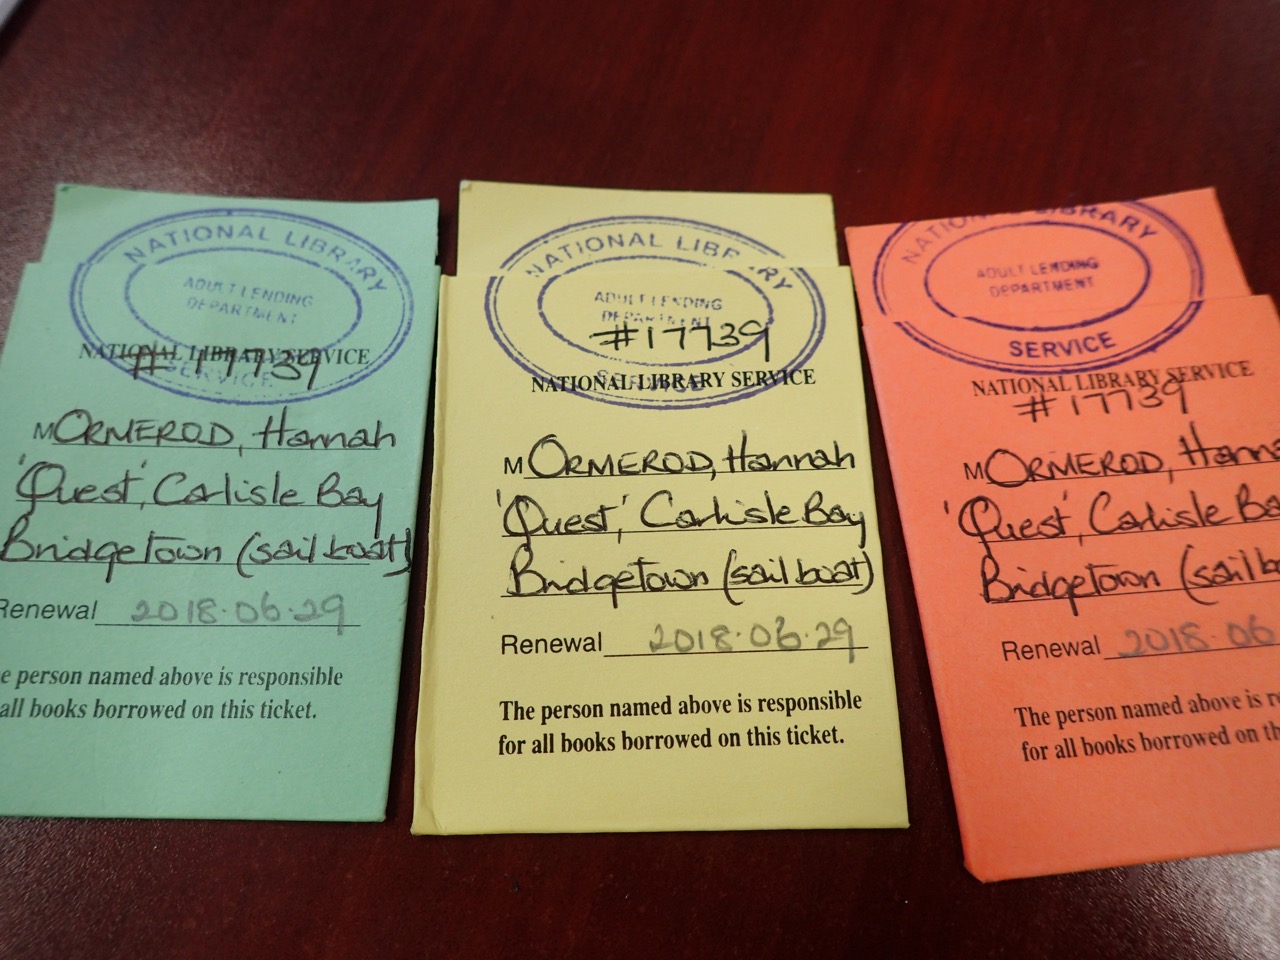 NATIONAL LIBRARY
ADULT LENDING
DEPARTMENT
SERVICE
NATIONAL LIBRARY SERVICE
#17739
MORMEROD, Hannah
'Quest', Carlisle Bay
Bridgetown (sail boat)
Renewal 2018.06.29
e person named above is responsible
all books borrowed on this ticket.
NATIONAL LIBRARY
ADULT LENDING
DEPARTMENT
#17739
SERVICE
NATIONAL LIBRARY SERVICE
MORMEROD, Hannah
'Quest', Carlisle Bay
Bridgetown (sail boat)
Renewal 2018.06.29
The person named above is responsible
for all books borrowed on this ticket.
NATIONAL LIBRARY
ADULT LENDING
DEPARTMENT
SERVICE
NATIONAL LIBRARY SERVICE
#17739
MORMEROD, Hanna
'Quest', Carlisle Ba
Bridgetown (sail b
Renewal 2018.06
The person named above is re
for all books borrowed on th